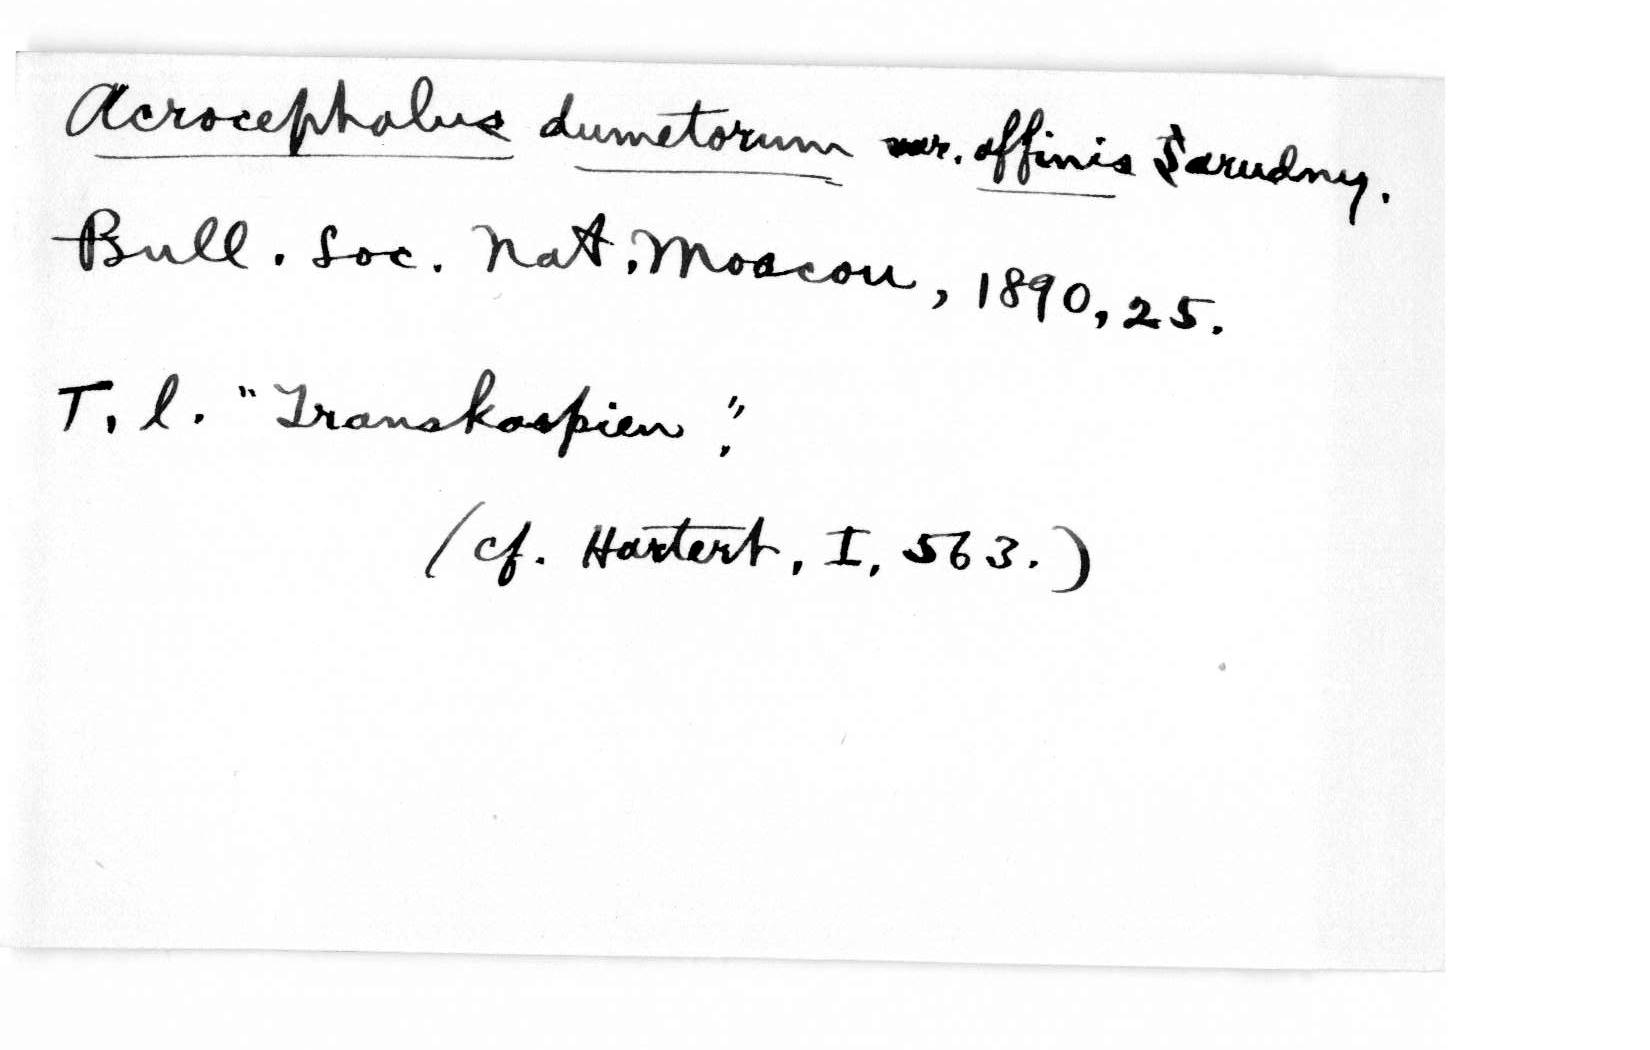 Acrocephalus dumetorum var. affinis Sarudny.
Bull. Soc. Nat. Moscou, 1890, 25.
T. l. "Transkaspien".
(cf. Hartert, I, 563.)